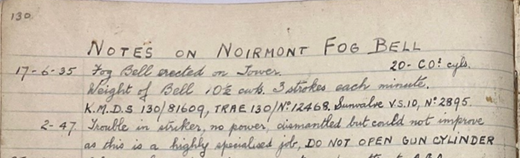 130.
NOTES ON NOIRMONT FOG BELL
17-6-35 Fog Bell erected on Tower. 20-CO² cyls.
Weight of Bell 10½ cwts. 3 strokes each minute.
K.M.D.S 130/81609, TRAE 130/Nº 12468. Sunvalve V.S.10, Nº 2895.
2-47. Trouble in striker, no power, dismantled but could not improve
as this is a highly specialised job, DO NOT OPEN GUN CYLINDER